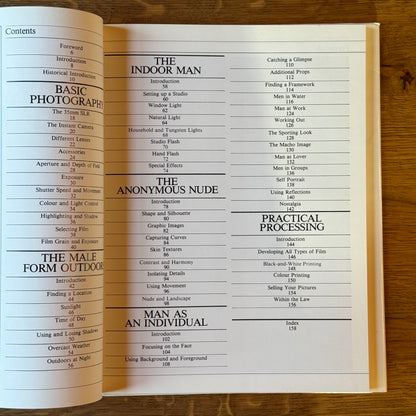 Contents
Foreword
6
Introduction
8
Historical Introduction
10
BASIC
PHOTOGRAPHY
The 35mm SLR
18
The Instant Camera
20
Different Lenses
22
Accessories
24
Aperture and Depth of Field
28
Exposure
30
Shutter Speed and Movement
32
Colour and Light Control
34
Highlighting and Shadow
36
Selecting Film
38
Film Grain and Exposure
40
THE MALE
FORM OUTDOORS
Introduction
42
Finding a Location
44
Sunlight
46
Time of Day
48
Using and Losing Shadows
50
Overcast Weather
54
Outdoors at Night
56
THE
INDOOR MAN
Introduction
58
Setting up a Studio
60
Window Light
62
Natural Light
64
Household and Tungsten Lights
68
Studio Flash
70
Hand Flash
72
Special Effects
74
THE
ANONYMOUS NUDE
Introduction
78
Shape and Silhouette
80
Graphic Images
82
Capturing Curves
84
Skin Textures
86
Contrast and Harmony
90
Isolating Details
94
Using Movement
96
Nude and Landscape
98
MAN AS
AN INDIVIDUAL
Introduction
102
Focusing on the Face
104
Using Background and Foreground
108
Catching a Glimpse
110
Additional Props
112
Finding a Framework
114
Men in Water
116
Man at Work
124
Working Out
126
The Sporting Look
128
The Macho Image
130
Man as Lover
132
Men in Groups
136
Self Portrait
138
Using Reflections
140
Nostalgia
142
PRACTICAL
PROCESSING
Introduction
144
Developing All Types of Film
146
Black-and-White Printing
148
Colour Printing
150
Selling Your Pictures
154
Within the Law
156
Index
158